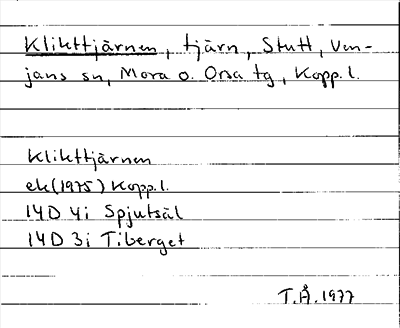 Klikttjärnen, tjärn, Stutt, Ven-
jans sn, Mora o. Orsa tg, Kopp.l.
Klikttjärnen
ek(1975) Kopp.l.
14D 4i Spjutsäl
14D 3i Tiberget
T.Å.1977